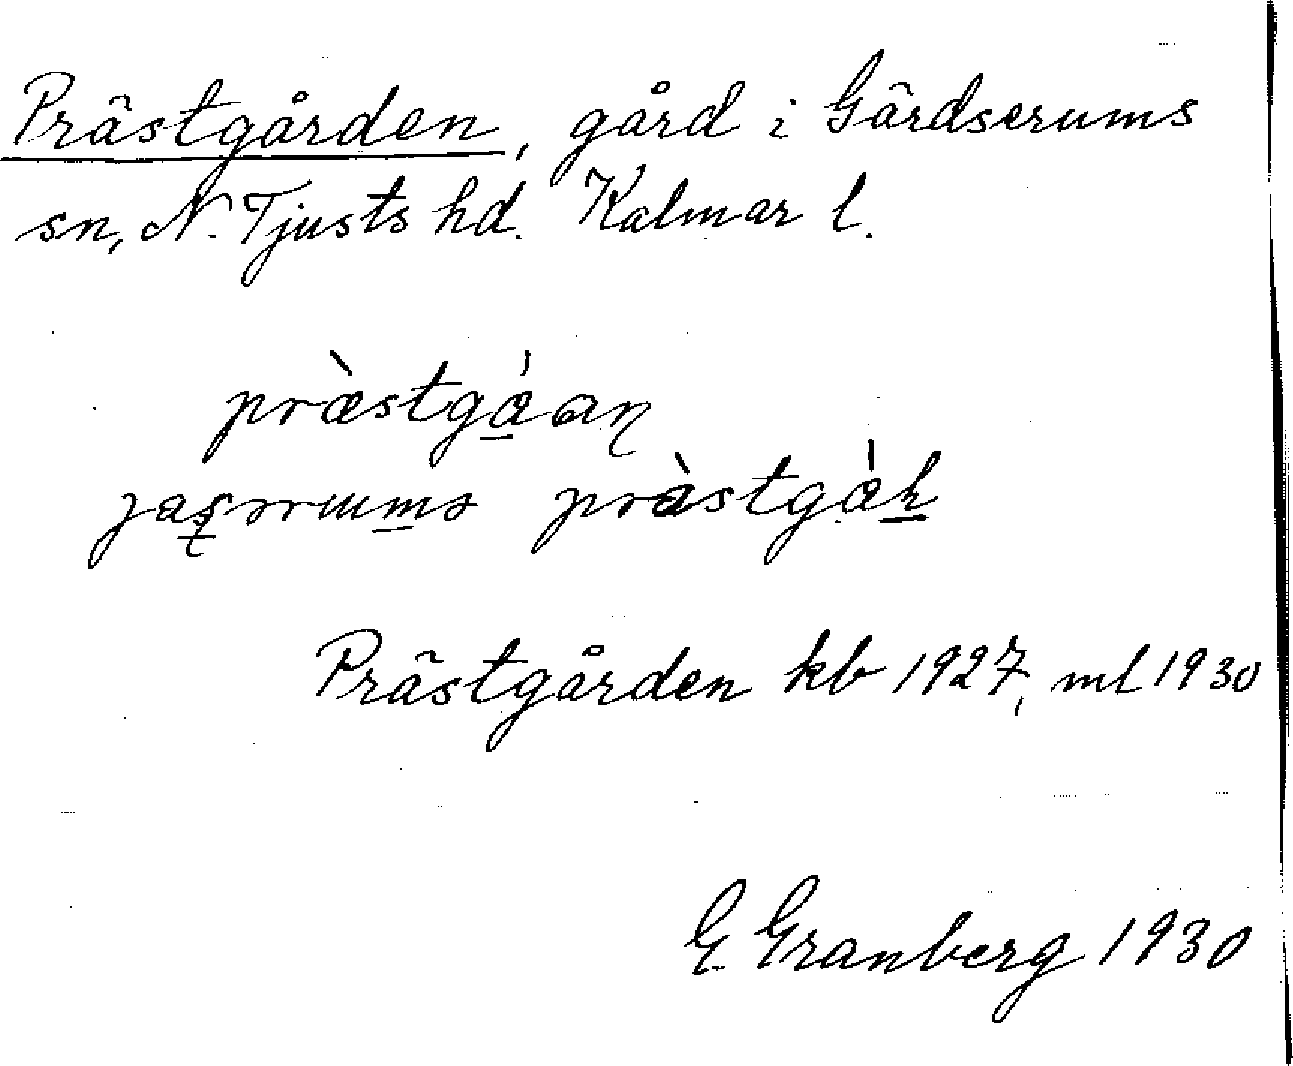 Prästgården, gård i Gärdserums
sn, N. Tjusts hd. Kalmar l.
præ̀stgáan
præ̀stgá
Prästgården kb 1927, ml 1930
G. Granberg 1930